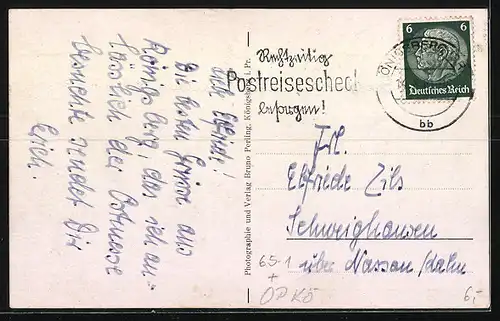 Liebe Elfriede!
Die besten Grüße aus
Königsberg, das ich an-
lässlich der Ostmesse
besuchte sendet Dir
Photographie und Verlag Bruno Perling, Königsberg i. Pr.
Rechtzeitig
Postreisescheck
besorgen!
KÖNIGSBERG
bb
6 6
Deutsches Reich
Frl.
Elfriede Zils
Schweighausen
über Nassau/Lahn
65-1
+
OPKÖ
6,-